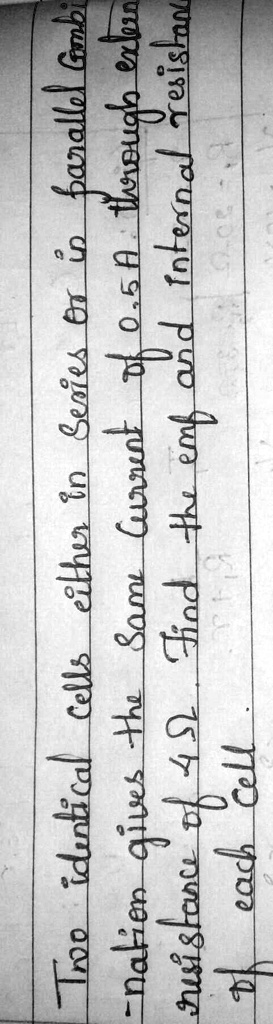 Two identical cells either in Series or in parallel Combi
-nation gives the Same Current of 0.5A through extern
resistance of 4Ω. Find the emf and internal resistanc
of each cell.